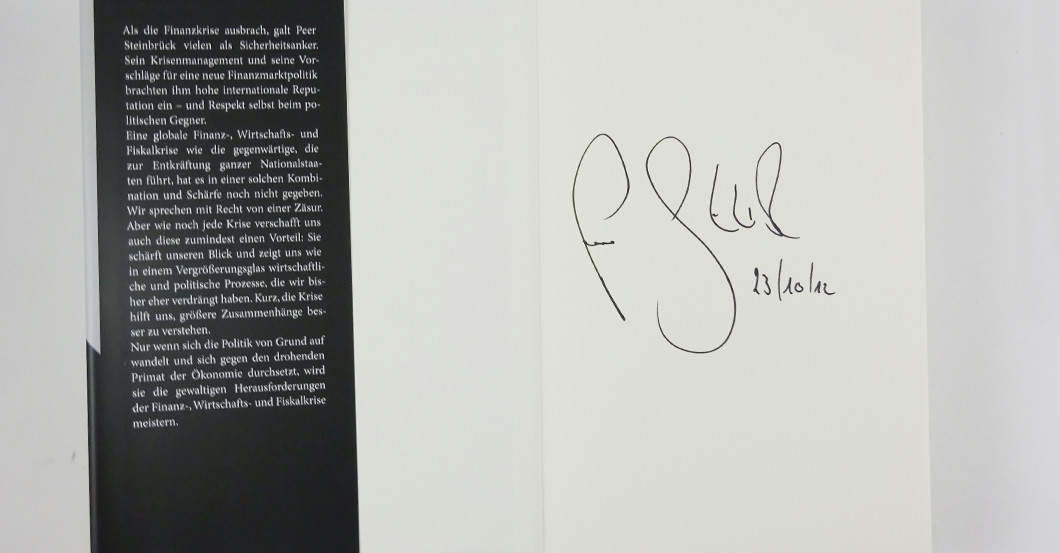 Als die Finanzkrise ausbrach, galt Peer
Steinbrück vielen als Sicherheitsanker.
Sein Krisenmanagement und seine Vor-
schläge für eine neue Finanzmarktpolitik
brachten ihm hohe internationale Repu-
tation ein – und Respekt selbst beim po-
litischen Gegner.
Eine globale Finanz-, Wirtschafts- und
Fiskalkrise wie die gegenwärtige, die
zur Entkräftung ganzer Nationalstaa-
ten führt, hat es in einer solchen Kombi-
nation und Schärfe noch nicht gegeben.
Wir sprechen mit Recht von einer Zäsur.
Aber wie noch jede Krise verschafft uns
auch diese zumindest einen Vorteil: Sie
schärft unseren Blick und zeigt uns wie
in einem Vergrößerungsglas wirtschaftli-
che und politische Prozesse, die wir bis-
her eher verdrängt haben. Kurz, die Krise
hilft uns, größere Zusammenhänge bes-
ser zu verstehen.
Nur wenn sich die Politik von Grund auf
wandelt und sich gegen den drohenden
Primat der Ökonomie durchsetzt, wird
sie die gewaltigen Herausforderungen
der Finanz-, Wirtschafts- und Fiskalkrise
meistern.
23/10/12